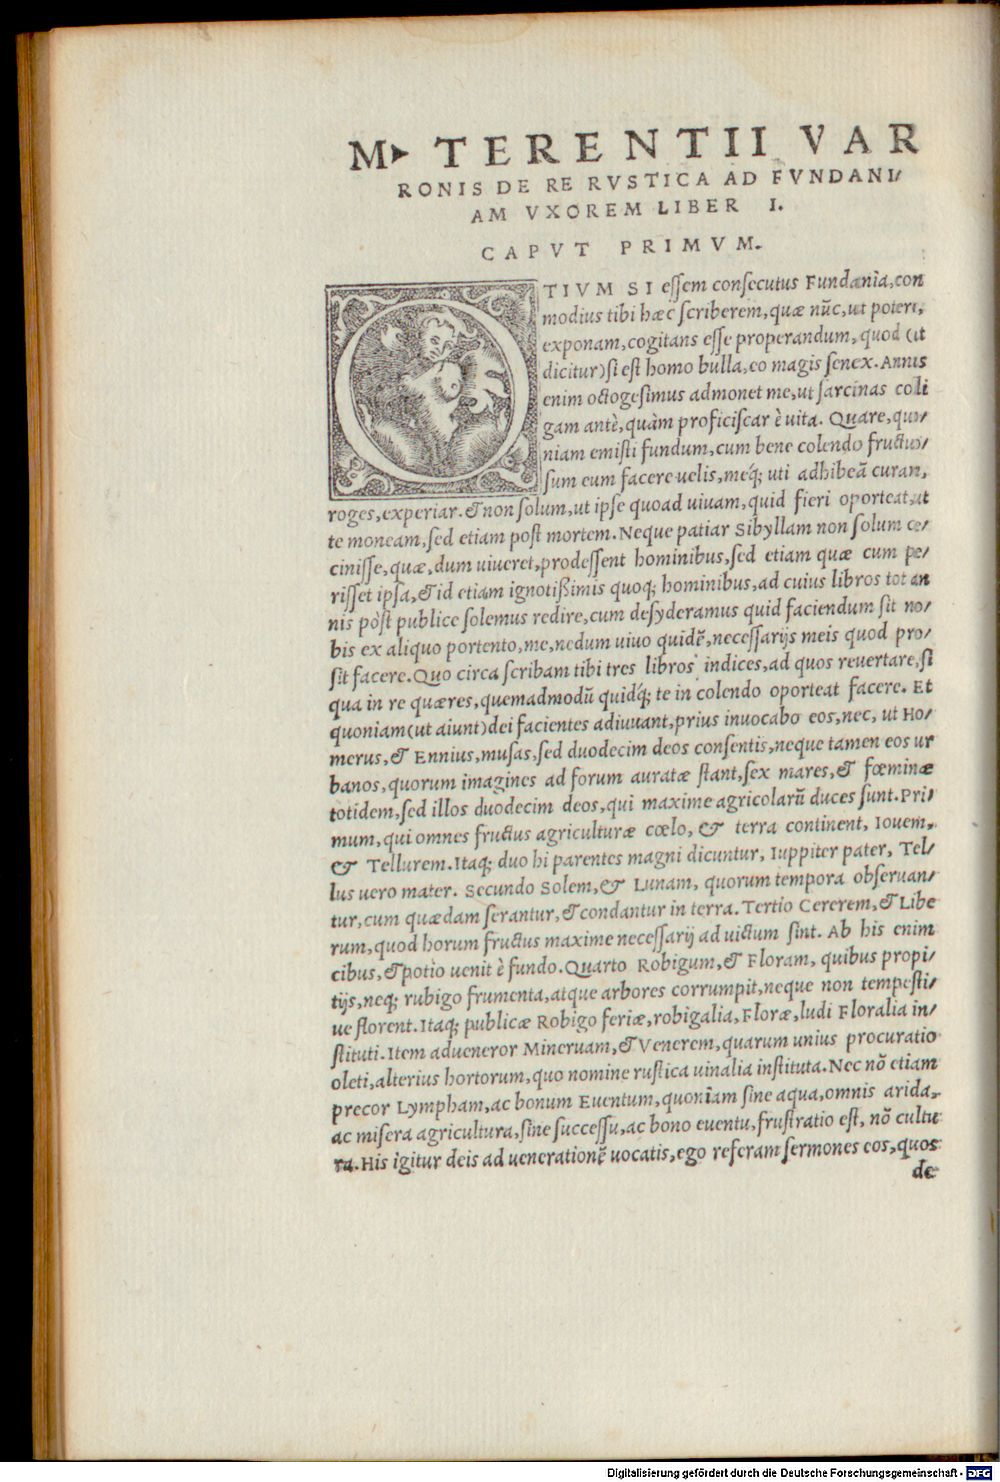 M. TERENTII VAR
RONIS DE RE RVSTICA AD FVNDANI/
AM VXOREM LIBER I.
CAPVT PRIMVM.
OTIVM SI essem consecutus Fundania, con
modius tibi hæc scriberem, quæ nūc, ut potero,
exponam, cogitans esse properandum, quod (ut
dicitur) si est homo bulla, eo magis senex. Annus
enim octogesimus admonet me, ut sarcinas colli
gam antè, quàm proficiscar è uita. Quare, quo/
niam emisti fundum, cum bene colendo fructuo/
sum eum facere uelis, meq́; uti adhibeā curam,
roges, experiar. & non solum, ut ipse quoad uiuam, quid fieri oporteat, ut
te moneam, sed etiam post mortem. Neque patiar Sibyllam non solum ce/
cinisse, quæ, dum uiueret, prodessent hominibus, sed etiam quæ cum pe/
risset ipsa, & id etiam ignotißimis quoq; hominibus, ad cuius libros tot an
nis pòst publice solemus redire, cum desyderamus quid faciendum sit no/
bis ex aliquo portento, me, nedum uiuo quidē, necessarijs meis quod pro/
sit facere. Quo circa scribam tibi tres libros indices, ad quos reuertare, si
qua in re quæres, quemadmodū quidq́; te in colendo oporteat facere. Et
quoniam (ut aiunt) dei facientes adiuuant, prius inuocabo eos, nec, ut Ho/
merus, & Ennius, musas, sed duodecim deos consentis, neque tamen eos ur
banos, quorum imagines ad forum auratæ stant, sex mares, & fœminæ
totidem, sed illos duodecim deos, qui maxime agricolarū duces sunt. Pri/
mum, qui omnes fructus agriculturæ cœlo, & terra continent, Iouem,
& Tellurem. Itaq; duo hi parentes magni dicuntur, Iuppiter pater, Tel/
lus uero mater. Secundo Solem, & Lunam, quorum tempora obseruan/
tur, cum quædam serantur, & condantur in terra. Tertio Cererem, & Libe
rum, quod horum fructus maxime necessarij ad uictum sint. Ab his enim
cibus, & potio uenit è fundo. Quarto Robigum, & Floram, quibus propi/
tijs, neq; rubigo frumenta, atque arbores corrumpit, neque non tempesti/
ue florent. Itaq; publicæ Robigo feriæ, robigalia, Floræ, ludi Floralia in/
stituti. Item adueneror Mineruam, & Venerem, quarum unius procuratio
oleti, alterius hortorum, quo nomine rustica uinalia instituta. Nec nō etiam
precor Lympham, ac bonum Euentum, quoniam sine aqua, omnis arida,
ac misera agricultura, sine successu, ac bono euentu, frustratio est, nō cultu
ra. His igitur deis ad uenerationē uocatis, ego referam sermones eos, quos
de
Digitalisierung gefördert durch die Deutsche Forschungsgemeinschaft - DFG